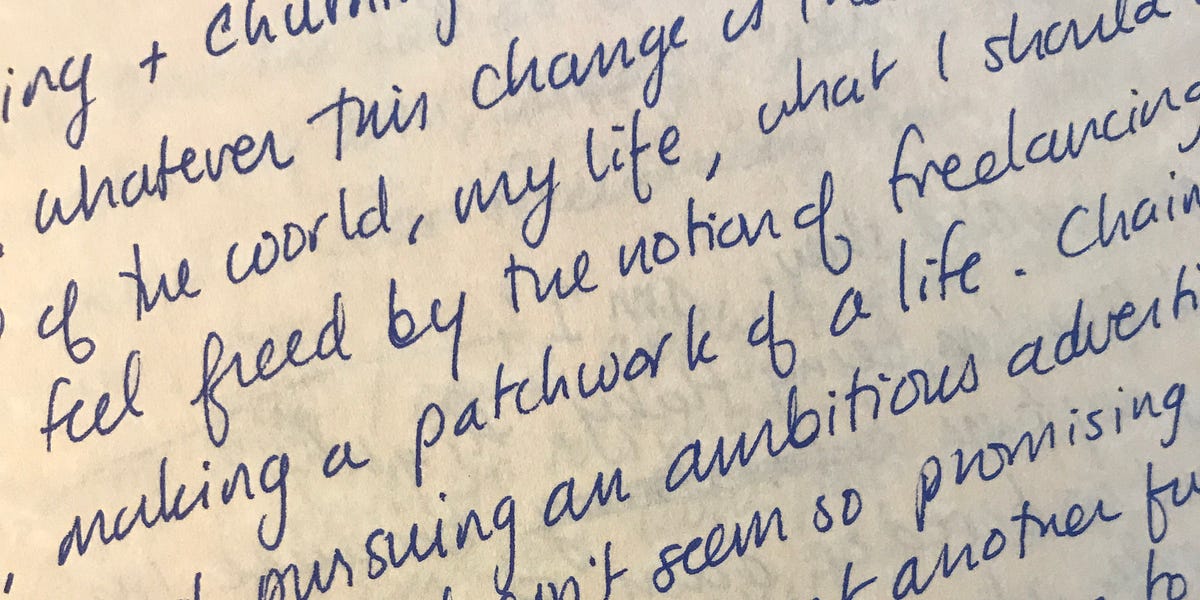 ing +
whatever this change is
of the world, my life, what I should
feel freed by the notion of freelancing
making a patchwork of a life. Chain
pursuing an ambitious adverti
n't seem so promising
t another fu
to